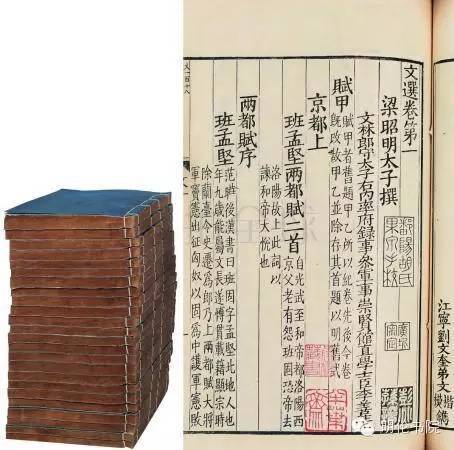 江寧劉文奎弟文楷模鐫
文選卷第一
梁昭明太子撰
文林郎守太子右内率府録事參軍事崇賢館直學士臣李善
賦甲
賦甲者舊題甲乙所以紀卷先後今卷
既改故甲乙並除存其首題以明舊式
京都上
班孟堅兩都賦二首
自光武至和帝都洛陽西
京父老有怨班固恐帝去
洛陽故上此詞以
諫和帝大悅也
兩都賦序
班孟堅
范曄後漢書曰班固字孟堅北地人也
年九歲能屬文長遂博貫載籍顯宗時
除蘭臺令史遷爲郎乃上兩都賦大將
軍竇憲出征匈奴以固爲中護軍憲敗
明伦书院